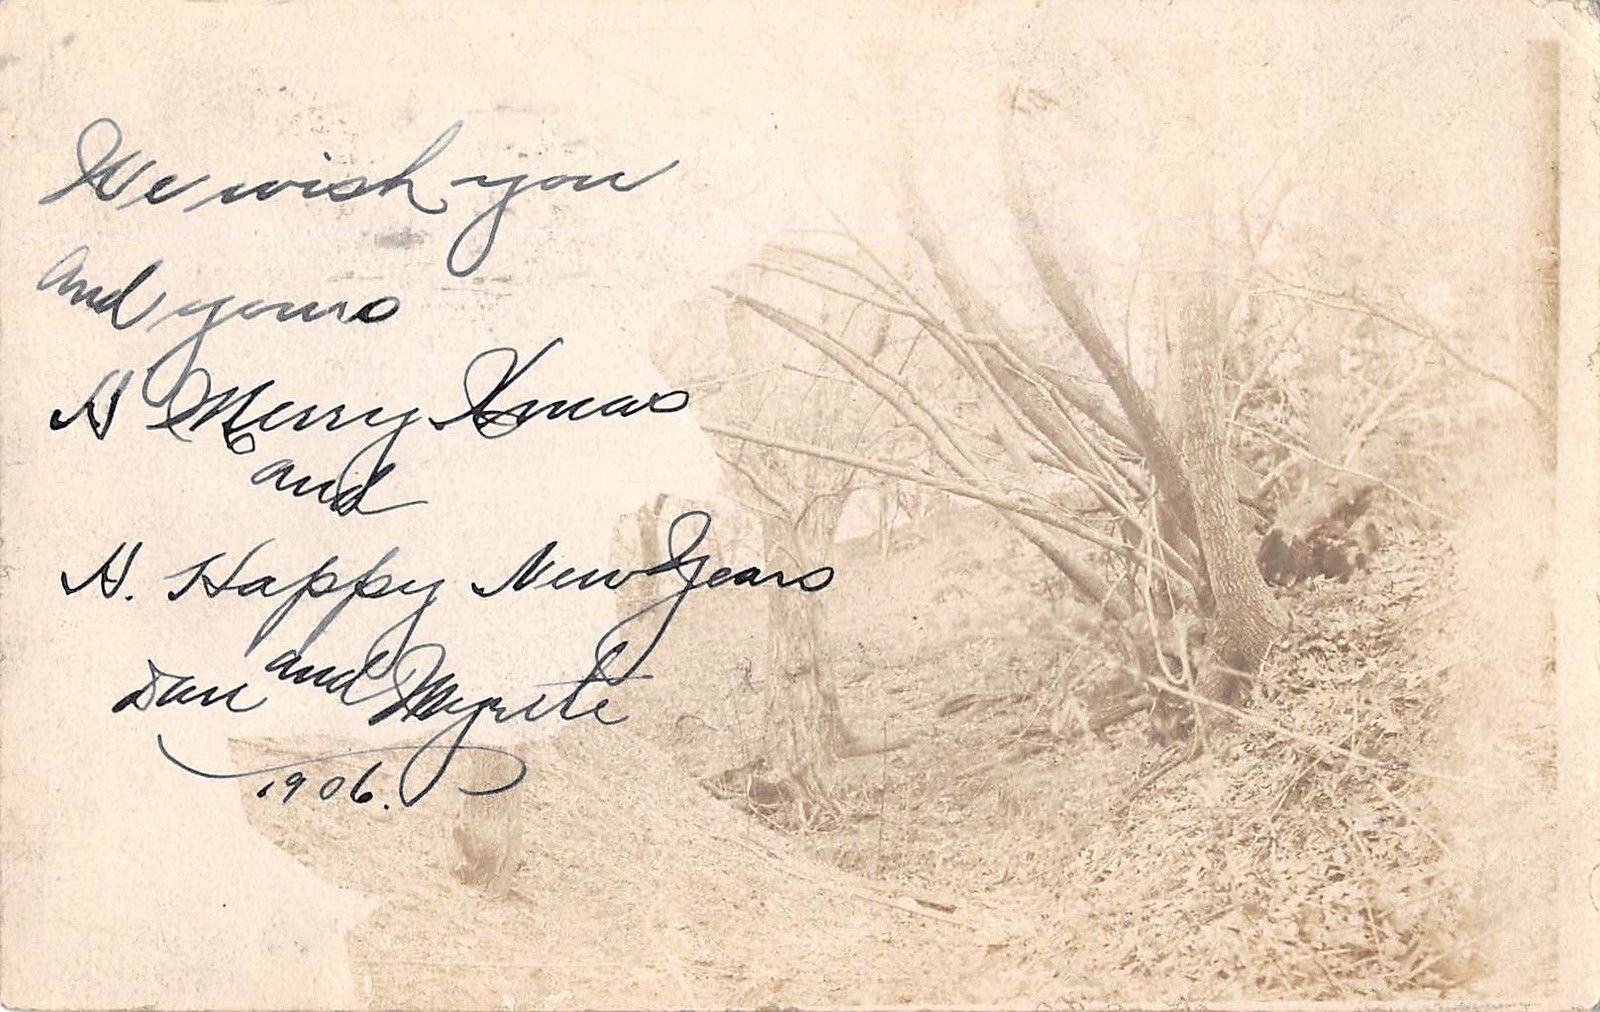 We wish you
and yours
A Merry Xmas
and
A. Happy New Years
Dan and Myrtle
1906.